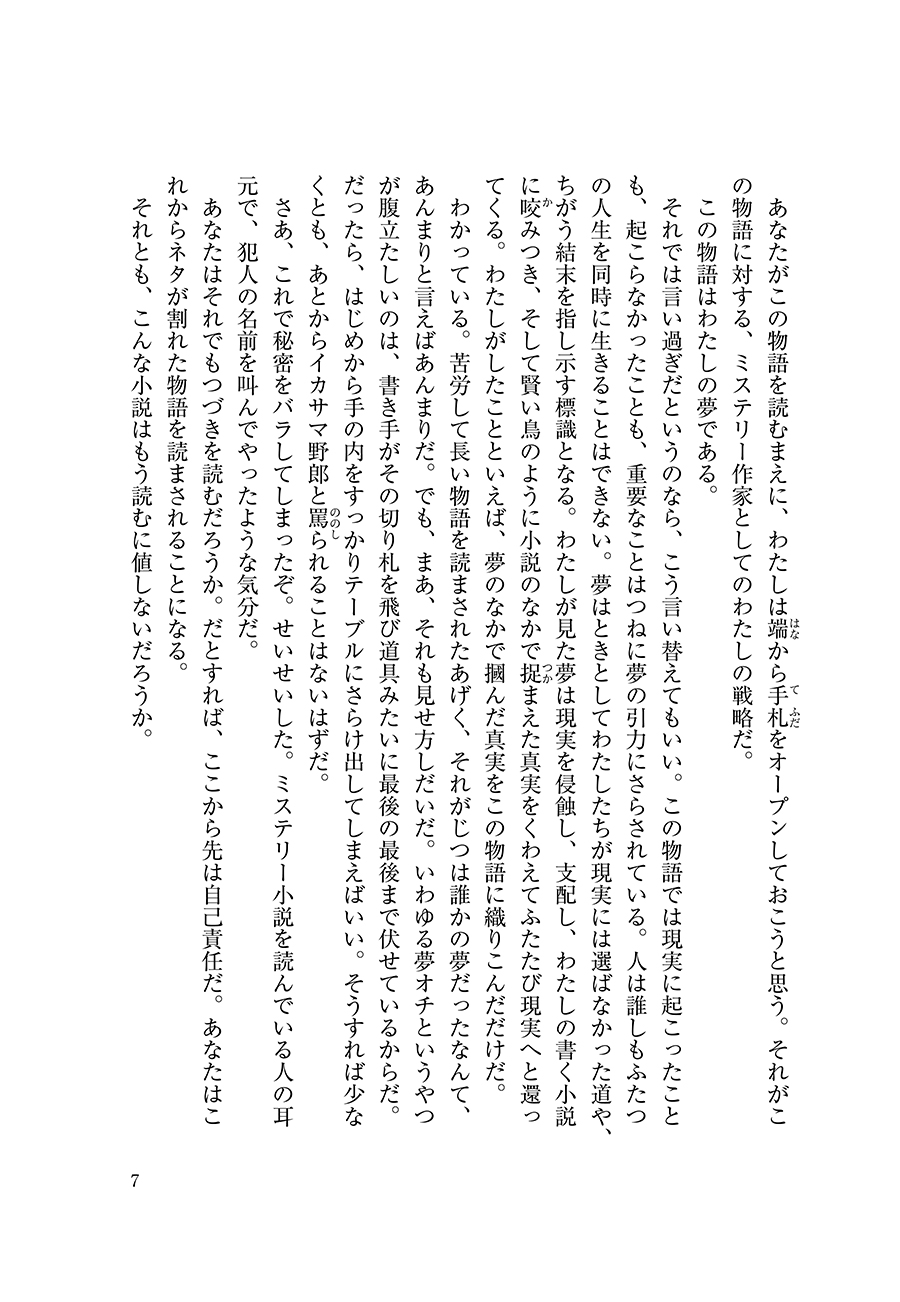 あなたがこの物語を読むまえに、わたしは端から手札をオープンしておこうと思う。それがこ
の物語に対する、ミステリー作家としてのわたしの戦略だ。
この物語はわたしの夢である。
それでは言い過ぎだというのなら、こう言い替えてもいい。この物語では現実に起こったこと
も、起こらなかったことも、重要なことはつねに夢の引力にさらされている。人は誰しもふたつ
の人生を同時に生きることはできない。夢はときとしてわたしたちが現実には選ばなかった道や、
ちがう結末を指し示す標識となる。わたしが見た夢は現実を侵蝕し、支配し、わたしの書く小説
に咬みつき、そして賢い鳥のように小説のなかで捉まえた真実をくわえてふたたび現実へと還っ
てくる。わたしがしたことといえば、夢のなかで摑んだ真実をこの物語に織りこんだだけだ。
わかっている。苦労して長い物語を読まされたあげく、それがじつは誰かの夢だったなんて、
あんまりと言えばあんまりだ。でも、まあ、それも見せ方しだいだ。いわゆる夢オチというやつ
が腹立たしいのは、書き手がその切り札を飛び道具みたいに最後の最後まで伏せているからだ。
だったら、はじめから手の内をすっかりテーブルにさらけ出してしまえばいい。そうすれば少な
くとも、あとからイカサマ野郎と罵られることはないはずだ。
さあ、これで秘密をバラしてしまったぞ。せいせいした。ミステリー小説を読んでいる人の耳
元で、犯人の名前を叫んでやったような気分だ。
あなたはそれでもつづきを読むだろうか。だとすれば、ここから先は自己責任だ。あなたはこ
れからネタが割れた物語を読まされることになる。
それとも、こんな小説はもう読むに値しないだろうか。
7